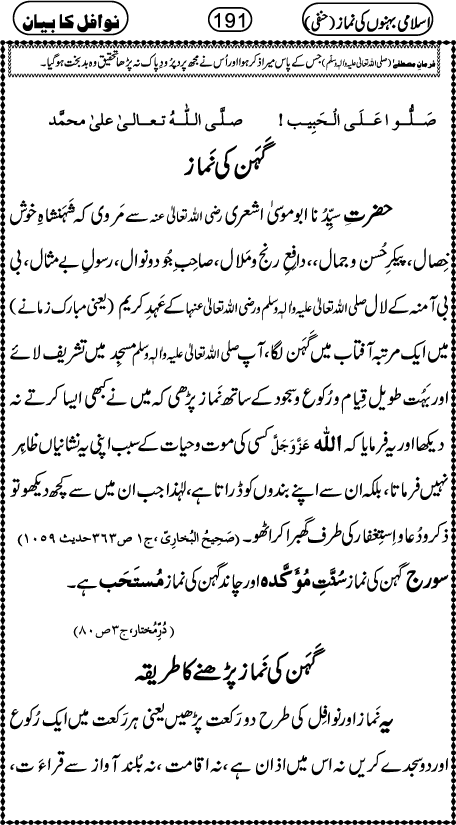 اسلامی بہنوں کی نماز (حنفی) 191 نوافل کا بیان
فرمانِ مصطفےٰ (صلی اللہ تعالیٰ علیہ والہٖ وسلم) جس کے پاس میرا ذکر ہوا اور اُس نے مجھ پر دُرُودِ پاک نہ پڑھا تحقیق وہ بد بخت ہو گیا۔
صَلُّوا عَلَی الْحَبِیب! صلَّی اللّٰہُ تعالیٰ علیٰ محمَّد
گہن کی نَماز
حضرتِ سیِّدُنا ابو موسیٰ اشعری رضی اللہ تعالیٰ عنہ سے مَروی کہ شَہَنشاہِ خوش
خِصال، پیکرِ حُسن و جمال،، دافِعِ رنج و مَلال، صاحبِ جُود و نوال، رسولِ بے مثال، بی
بی آمنہ کے لال صلی اللہ تعالیٰ علیہ والہٖ وسلم و رضی اللہ تعالیٰ عنہا کے عَہدِ کریم (یعنی مبارک زمانے)
میں ایک مرتبہ آفتاب میں گہن لگا، آپ صلی اللہ تعالیٰ علیہ والہٖ وسلم مسجِد میں تشریف لائے
اور بَہُت طویل قِیام و رُکوع و سجود کے ساتھ نَماز پڑھی کہ میں نے کبھی ایسا کرتے نہ
دیکھا اور یہ فرمایا کہ اللہ عَزَّوَجَلَّ کسی کی موت و حیات کے سبب اپنی یہ نشانیاں ظاہِر
نہیں فرماتا، بلکہ ان سے اپنے بندوں کو ڈراتا ہے، لہٰذا جب ان میں سے کچھ دیکھو تو
ذکر و دُعا و اِستِغفار کی طرف گھبرا کر اٹھو۔ (صَحِیحُ البُخارِیّ ،ج۱ ص۳۶۳حدیث ۱۰۵۹)
سورج گہن کی نَماز سُنّتِ مُؤَکَّدہ اور چاند گہن کی نَماز مُستَحَب ہے۔
(دُرِّمُختار،ج۳ص۸۰)
گہن کی نَماز پڑھنے کا طریقہ
یہ نَماز اور نوافِل کی طرح دو رَکعت پڑھیں یعنی ہر رَکعت میں ایک رُکوع
اور دو سجدے کریں نہ اس میں اذان ہے ،نہ اقامت ،نہ بُلند آواز سے قراءَت،